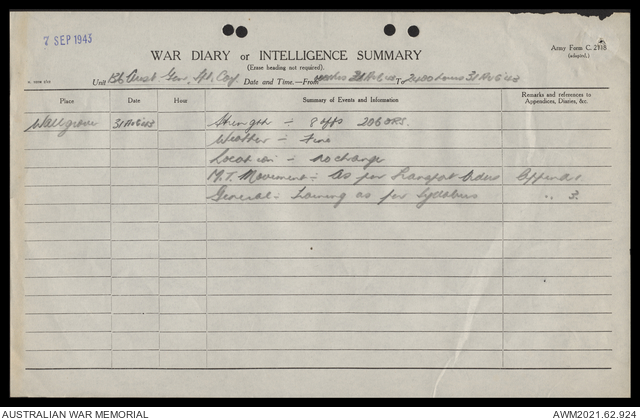 7 SEP 1943
Army Form C. 2118
(adapted.)
WAR DIARY or INTELLIGENCE SUMMARY
(Erase heading not required).
Unit Aust Gen. Tpt. Coy Date and Time.—From 31 Aug 43 To 2400 hours 31 Aug 43
Place Date Hour Summary of Events and Information Remarks and references to
Appendices, Diaries, &c.
Wallgrove 31 Aug 43 Strength :- 8 offs 206 ORS.
Weather :- Fine
Location :- No change
M.T. Movement :- As per Transport Orders Append 1.
General :- Training as per Syllabus " 3.
AUSTRALIAN WAR MEMORIAL AWM2021.62.924